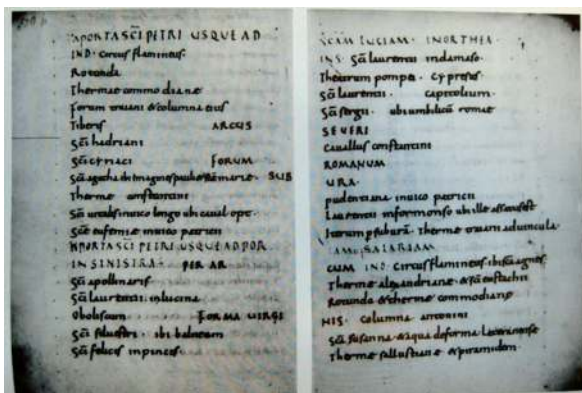 APORTA SCI PETRI USQUE AD
IND. Circus flamineus.
Rotunda
Thermae commodiane
Forum traiani & columna eius
Tiberis ARCUS
Sci hadriani
Sci cyriaci FORUM
Sca agatha ibi imagines pauli & scae mariae. SUB
Thermae constantini
Sci uitalis in uico longo ubi caual opt.
Scae eufemiae in uico patricii
APORTA SCI PETRI USQUE AD POR
IN SINISTRA. PER AR
Sci apollinaris
Sci laurentii in lucina
Oboliscum FORMA UIRGI
Sci siluestri. ibi balneum
Sci felicis in pincis.
SCAM LUCIAM. IN ORTHEA
INS. Sci laurentii in damaso.
Theatrum pompei. Cypresus.
Sci laurentii. capitolium.
Sci sergii. ubi umbilicum romae
SEUERI
Cauallus constantini
ROMANUM
URA.
pudentiana in uico patricii
Laurentii in formonso ubi ille assatus est
Iterum per suburam. Thermae traiani ad uincula
TAM SALARIAM
CUM IND. Circus flamineus. ibi sca agnes.
Thermae alexandrianae & sci eustachii
Rotunda & thermae commodianae
NIS. Columna antonini
Sca susanna & aqua de forma lateranense
Thermae sallustianae & piramidem.